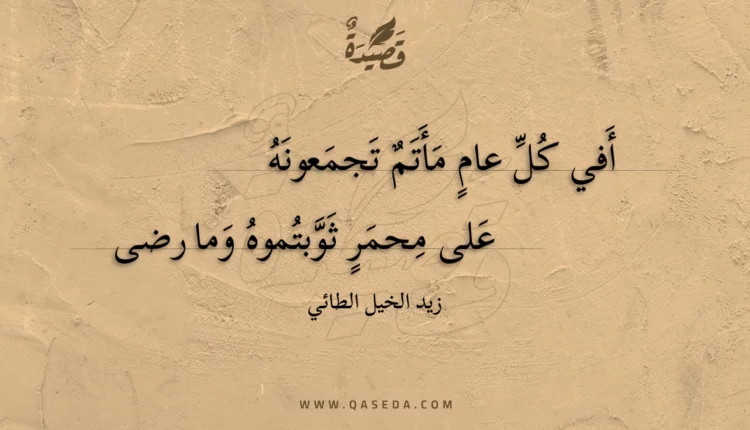 قَصِيدَةٌ
أَفي كُلِّ عامٍ مَأَتَمٌ تَجمَعونَهُ
عَلى مِحمَرٍ ثَوَّبتُموهُ وَما رضى
زيد الخيل الطائي
WWW.QASEDA.COM